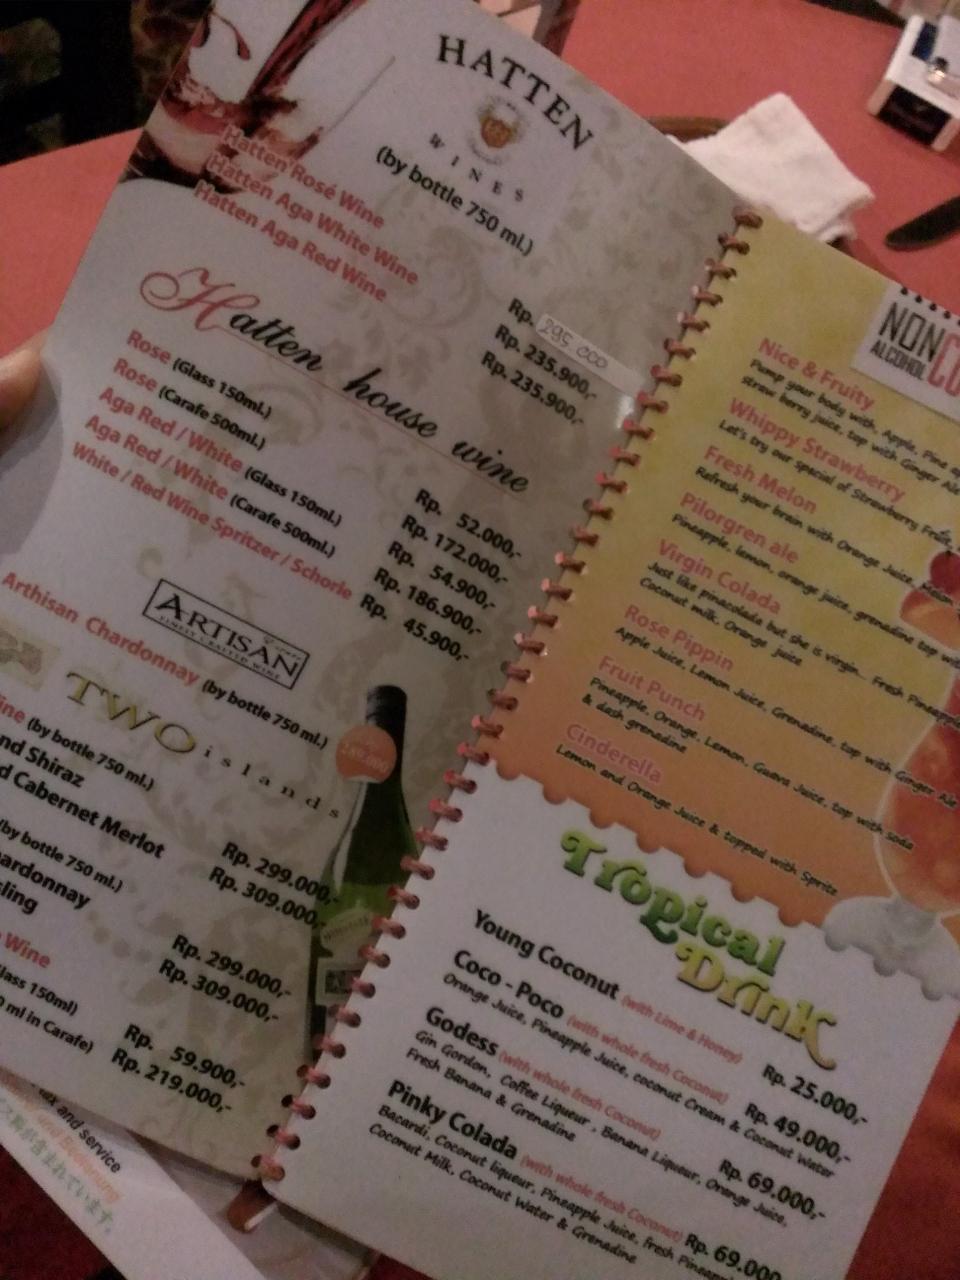 HATTEN
WINES
(by bottle 750 ml.)
Hatten Rosé Wine Rp. 295.000
Hatten Aga White Wine Rp. 235.900,-
Hatten Aga Red Wine Rp. 235.900,-
Hatten house wine
Rose (Glass 150ml.) Rp. 52.000,-
Rose (Carafe 500ml.) Rp. 172.000,-
Aga Red / White (Glass 150ml.) Rp. 54.900,-
Aga Red / White (Carafe 500ml.) Rp. 186.900,-
White / Red Wine Spritzer / Schorle Rp. 45.900,-
ARTISAN
Arthisan Chardonnay (by bottle 750 ml.)
TWO islands
ine (by bottle 750 ml.)
nd Shiraz Rp. 299.000,-
d Cabernet Merlot Rp. 309.000,-
(by bottle 750 ml.)
ardonnay Rp. 299.000,-
sling Rp. 309.000,-
Wine
lass 150ml) Rp. 59.900,-
0 ml in Carafe) Rp. 219.000,-
and service
NON
ALCOHOL CO
Nice & Fruity
Pump your body with, Apple, Pine ap
straw berry juice, top with Ginger Ale
Whippy Strawberry
Let's try our special of Strawberry Fruits,
Fresh Melon
Refresh your brain with Orange Juice, Melon
Pilorgren ale
Pineapple, lemon, orange juice, grenadine top wit
Virgin Colada
Just like pinacolada but she is virgin... Fresh Pineapple
Coconut milk, Orange juice
Rose Pippin
Apple Juice, Lemon Juice, Grenadine, top with Ginger Ale
Fruit Punch
Pineapple, Orange, Lemon, Guava Juice, top with soda
& dash grenadine
Cinderella
Lemon and Orange Juice & topped with Sprite
Tropical
Drink
Young Coconut (with Lime & Honey) Rp. 25.000,-
Coco - Poco (with whole fresh Coconut) Rp. 49.000,-
Orange Juice, Pineapple Juice, coconut Cream & Coconut Water
Godess (with whole fresh Coconut) Rp. 69.000,-
Gin Gordon, Coffee Liqueur, Banana Liqueur, Orange Juice,
Fresh Banana & Grenadine
Pinky Colada (with whole fresh Coconut) Rp. 69.000
Bacardi, Coconut liqueur, Pineapple Juice, fresh Pineapp
Coconut Milk, Coconut Water & Grenadine